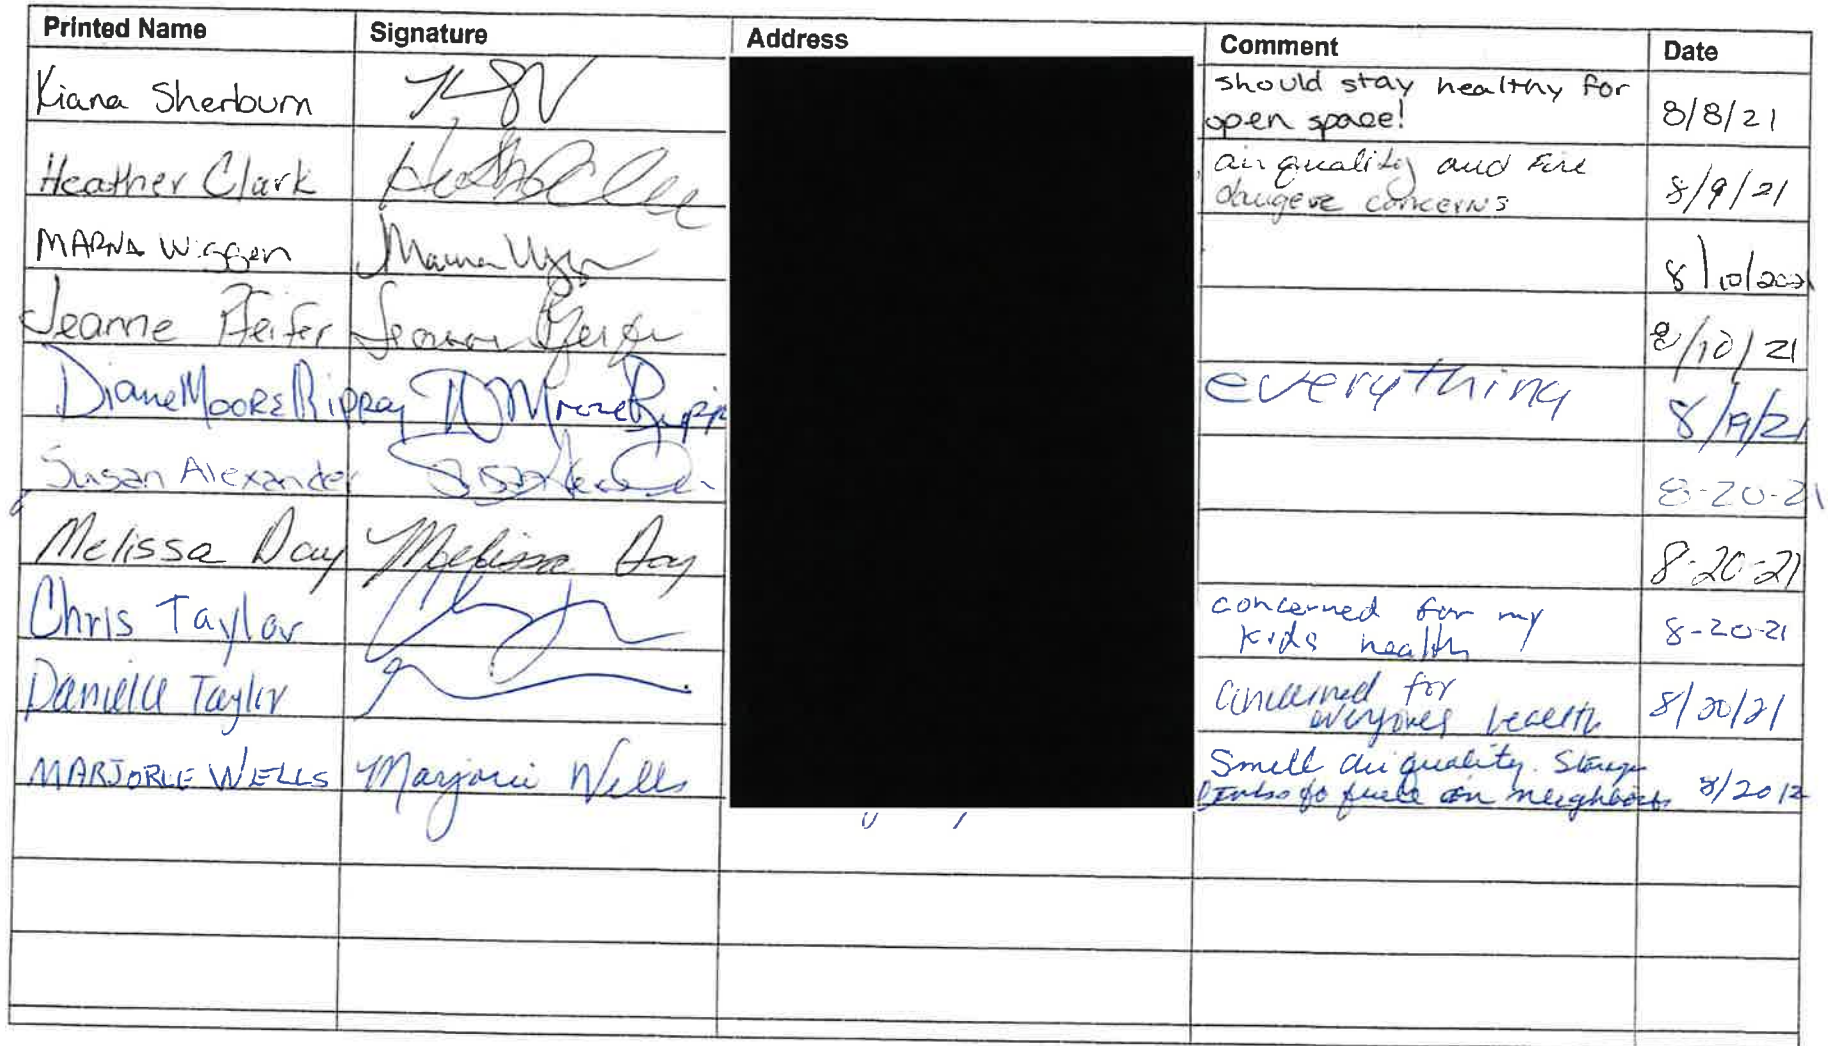 Printed Name Signature Address Comment Date
Kiana Sherburn should stay healthy for
open space! 8/8/21
Heather Clark air quality and Fire
dangere concerns 8/9/21
MARNA Wiggen 8/10/2021
Jeanne Pfeifer 8/10/21
Diane Moore Rippey everything 8/9/21
Susan Alexander 8-20-21
Melissa Day Melissa Day 8-20-21
Chris Taylor concerned for my
kids health 8-20-21
Danielle Taylor Concerned for
everyones health 8/20/21
MARJORIE WELLS Marjorie Wells Smell air quality. Storage
to fuele on neighbors 8/20/2